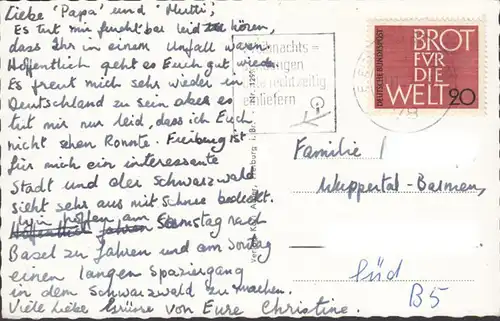 Liebe 'Papa' und 'Mutti',
Es tut mir furchtbar leid zu hören,
dass Ihr in einem Unfall waren.
Hoffentlich geht es Euch gut wieder.
Es freut mich sehr wieder in
Deutschland zu sein aber es
tut mir nur leid, dass ich Euch
nicht sehen konnte. Freiburg ist
für mich ein interessante
Stadt und der Schwarzwald
sieht sehr aus mit Schnee bedeckt.
Wir hoffen am
Hoffentlich fahren Samstag nach
Basel zu fahren und am Sontag
einen langen Spaziergang
in dem Schwarzwald zu machen.
Viele Liebe Grüsse von Eure Christine.
rechtzeitig
einliefern
DEUTSCHE BUNDESPOST
BROT
FÜR
DIE
WELT 20
Familie
Wuppertal-Barmen
Süd
B5